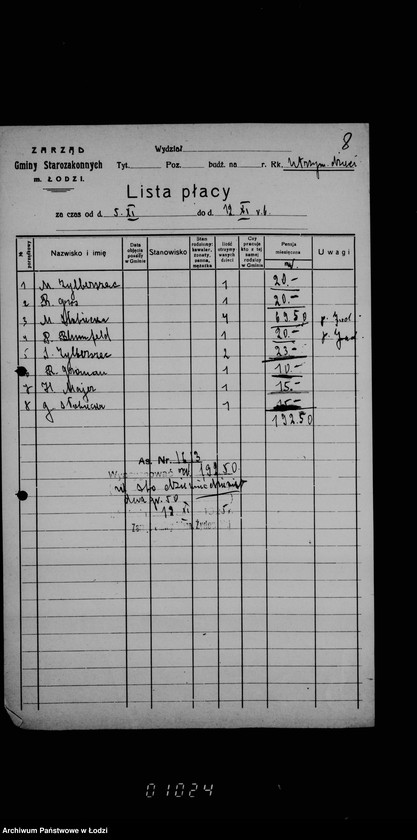 8
ZARZĄD
Gminy Starozakonnych
m. ŁODZI.
Wydział
Tyt. Poz. budż. na r. Rk. Utrzym. dzieci
Lista płacy
za czas od d. 5. XI do d. 12 XI r.b.
№ porządkowy Nazwisko i imię Data objęcia posady w Gminie Stanowisko Stan rodzinny: kawaler, żonaty, panna, mężatka Ilość utrzymywanych dzieci Czy pracuje kto z tej samej rodziny w Gminie Pensja miesięczna Uwagi
1 M. Zylberszac 1 20.-
2 R. Gros 1 20.-
3 M. 4 69.50
4 R. Blumfeld 1 20.-
5 J. Zylberszac 2 23.-
R. Groman 1 10.-
7 H. Major 1 15.-
8 G. 1 15.-
192.50
As. Nr. 1613
192.50
sto dziewięćdziesiąt
dwa gr. 50
12 XI
01024
Archiwum Państwowe w Łodzi